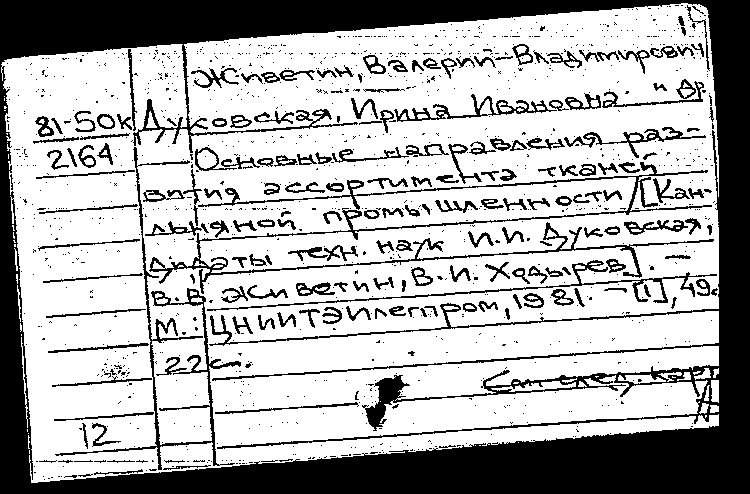 Живетин, Валерий Владимирович
81-50к Дуковская, Ирина Ивановна и др.
2164 Основные направления раз-
вития ассортимента тканей
льняной промышленности/[Кан-
дидаты техн. наук И.И. Дуковская,
В.В. Живетин, В.И. Ходырев]. –
М.: ЦНИИТЭИлегпром, 1981. – [1], 49 с.
22 см.
См. след. карт.
12